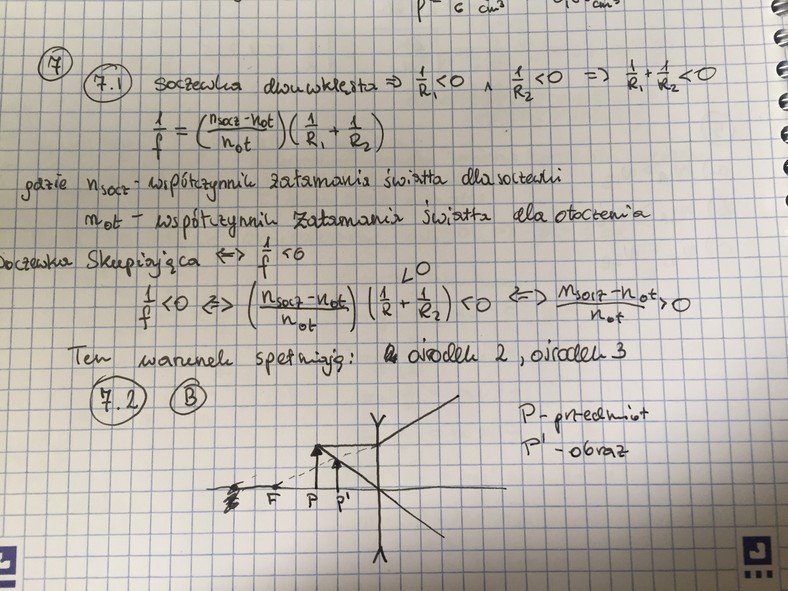 P = 6 cm³
cm³
7
7.1 Soczewka dwuwklęsła => 1/R₁ < 0 ∧ 1/R₂ < 0 => 1/R₁ + 1/R₂ < 0
1/f = (nsocz - not / not) (1/R₁ + 1/R₂)
gdzie nsocz - współczynnik załamania światła dla soczewki
not - współczynnik załamania światła dla otoczenia
Soczewka Skupiająca <=> 1/f < 0
<0
1/f < 0 <=> (nsocz - not / not) (1/R + 1/R₂) < 0 <=> nsocz - not / not > 0
Ten warunek spełniają: ośrodek 2, ośrodek 3
7.2 B
P - przedmiot
P' - obraz
F P P'